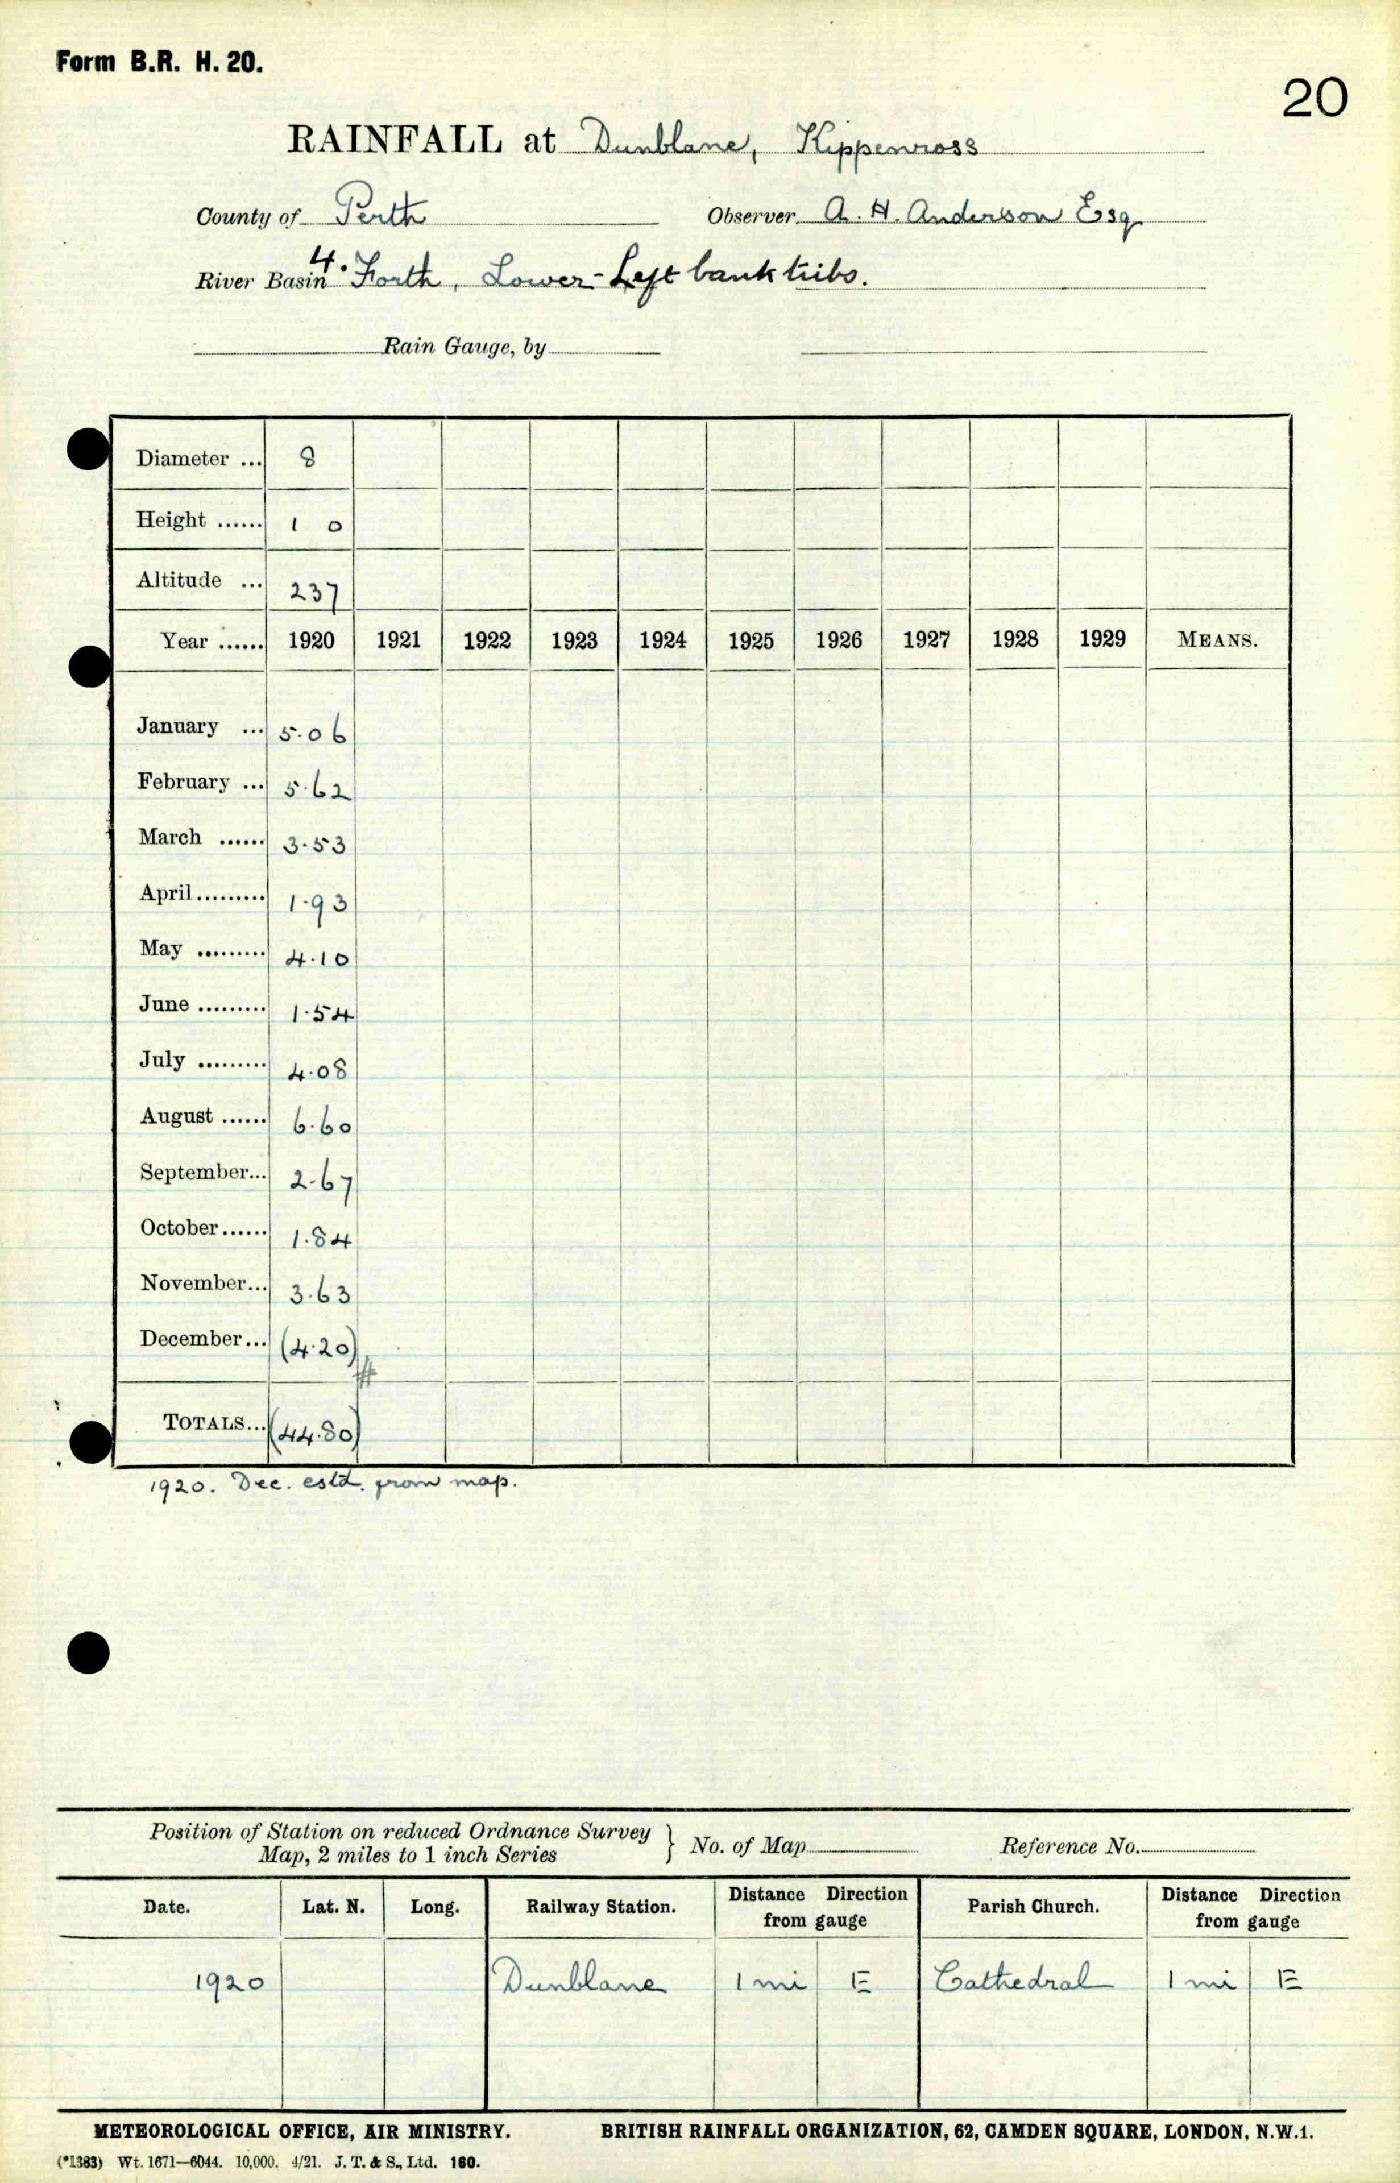 Form B.R. H. 20.
20
RAINFALL at Dunblane, Kippenross
County of Perth Observer A. H. Anderson Esq
River Basin 4. Forth, Lower-Left bank tribs.
Rain Gauge, by
Diameter ... 8
Height ...... 1 0
Altitude ... 237
Year ...... 1920 1921 1922 1923 1924 1925 1926 1927 1928 1929 MEANS.
January ... 5.06
February ... 5.62
March ...... 3.53
April ......... 1.93
May ......... 4.10
June ......... 1.54
July ......... 4.08
August ...... 6.60
September... 2.67
October...... 1.84
November... 3.63
December... (4.20)
#
TOTALS... (44.80)
1920. Dec. estd. from map.
Position of Station on reduced Ordnance Survey
Map, 2 miles to 1 inch Series } No. of Map Reference No.
Date. Lat. N. Long. Railway Station. Distance Direction from gauge Parish Church. Distance Direction from gauge
1920 Dunblane 1 mi E Cathedral 1 mi E
METEOROLOGICAL OFFICE, AIR MINISTRY. BRITISH RAINFALL ORGANIZATION, 62, CAMDEN SQUARE, LONDON, N.W.1.
(*1383) Wt. 1671—6044. 10,000. 4/21. J. T. & S., Ltd. 160.